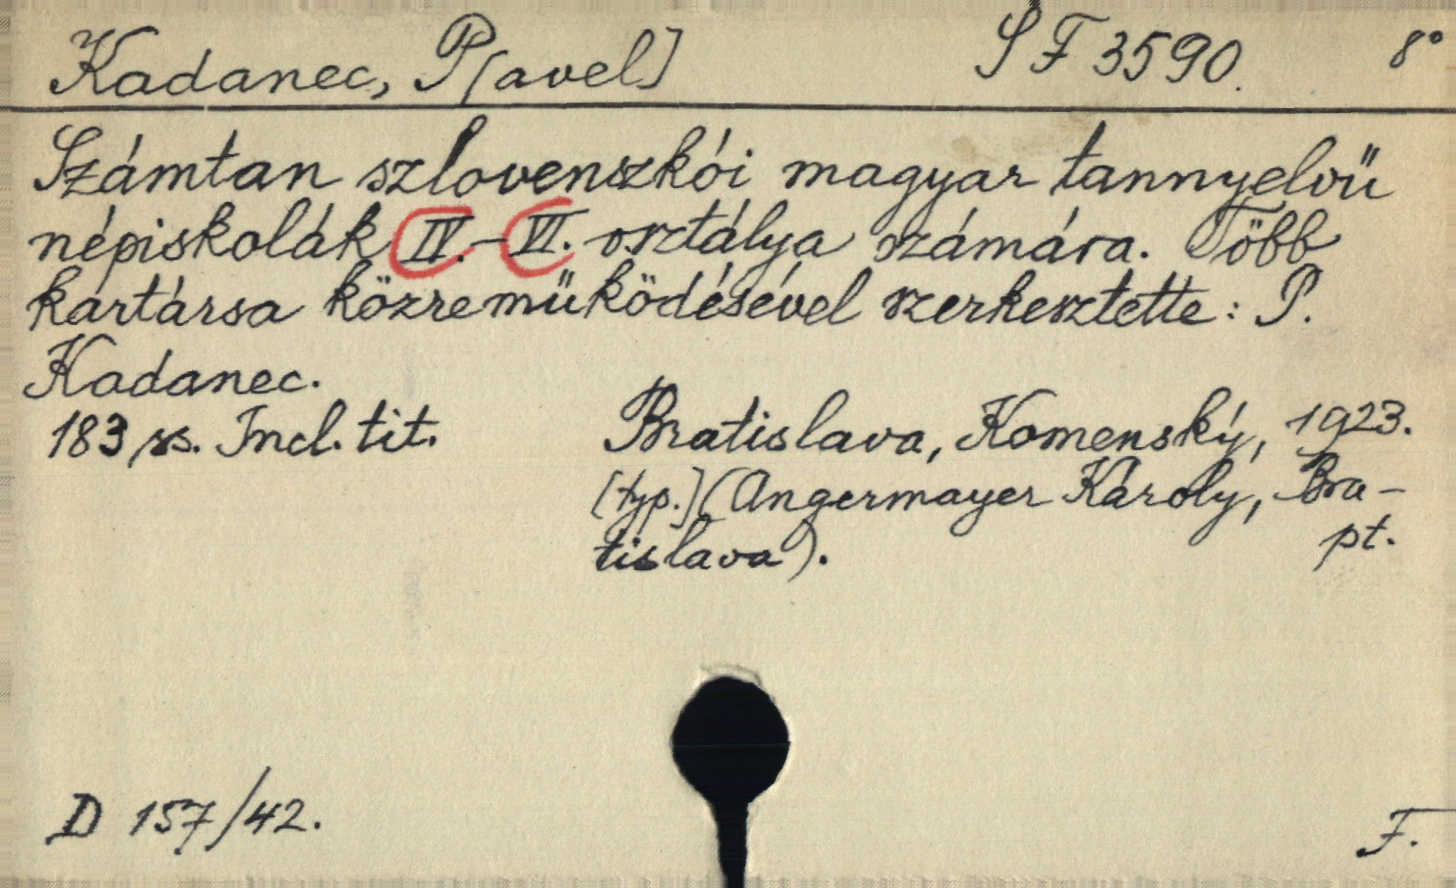 Kadanec, P[avel] SF 3590. 8°
Számtan szlovenszkói magyar tannyelvü
népiskolák IV.-VI. osztálya számára. Több
kartársa közremüködésével szerkesztette: P.
Kadanec.
183 ss. Incl. tit. Bratislava, Komenský, 1923.
[typ.] (Angermayer Károly, Bra-
tislava). pt.
D 157/42. F.